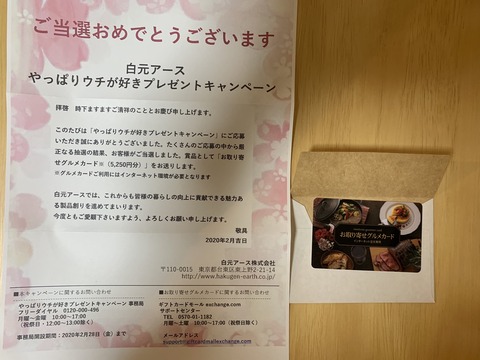 ご当選おめでとうございます
白元アース
やっぱりウチが好きプレゼントキャンペーン
拝啓　時下ますますご清祥のこととお慶び申し上げます。
このたびは「やっぱりウチが好きプレゼントキャンペーン」にご応募
いただき誠にありがとうございました。たくさんのご応募の中から厳
正なる抽選の結果、お客様がご当選しました。賞品として「お取り寄
せグルメカード※（5,250円分）」をお送りします。
※グルメカードご利用にはインターネット環境が必要となります
白元アースでは、これからも皆様の暮らしの向上に貢献できる魅力あ
る製品創りを進めてまいります。
今度ともご愛顧下さいますよう、よろしくお願い申し上げます。
敬具
2020年2月吉日
白元アース株式会社
〒110-0015　東京都台東区東上野2-21-14
http://www.hakugen-earth.co.jp/
■本キャンペーンに関するお問い合わせ
やっぱりウチが好きプレゼントキャンペーン 事務局
フリーダイヤル　0120-000-496
月曜～金曜　10:00～17:00
（祝祭日・12:00～13:00除く）
事務局開設期間：2020年2月28日（金）まで
■お取り寄せグルメカードに関するお問い合わせ
ギフトカードモール exchange.com
サポートセンター
TEL　0570-01-1182
月曜～土曜　10:00～17:00（祝祭日除く）
メールアドレス
support@giftcardmallexchange.com
お取り寄せグルメカード